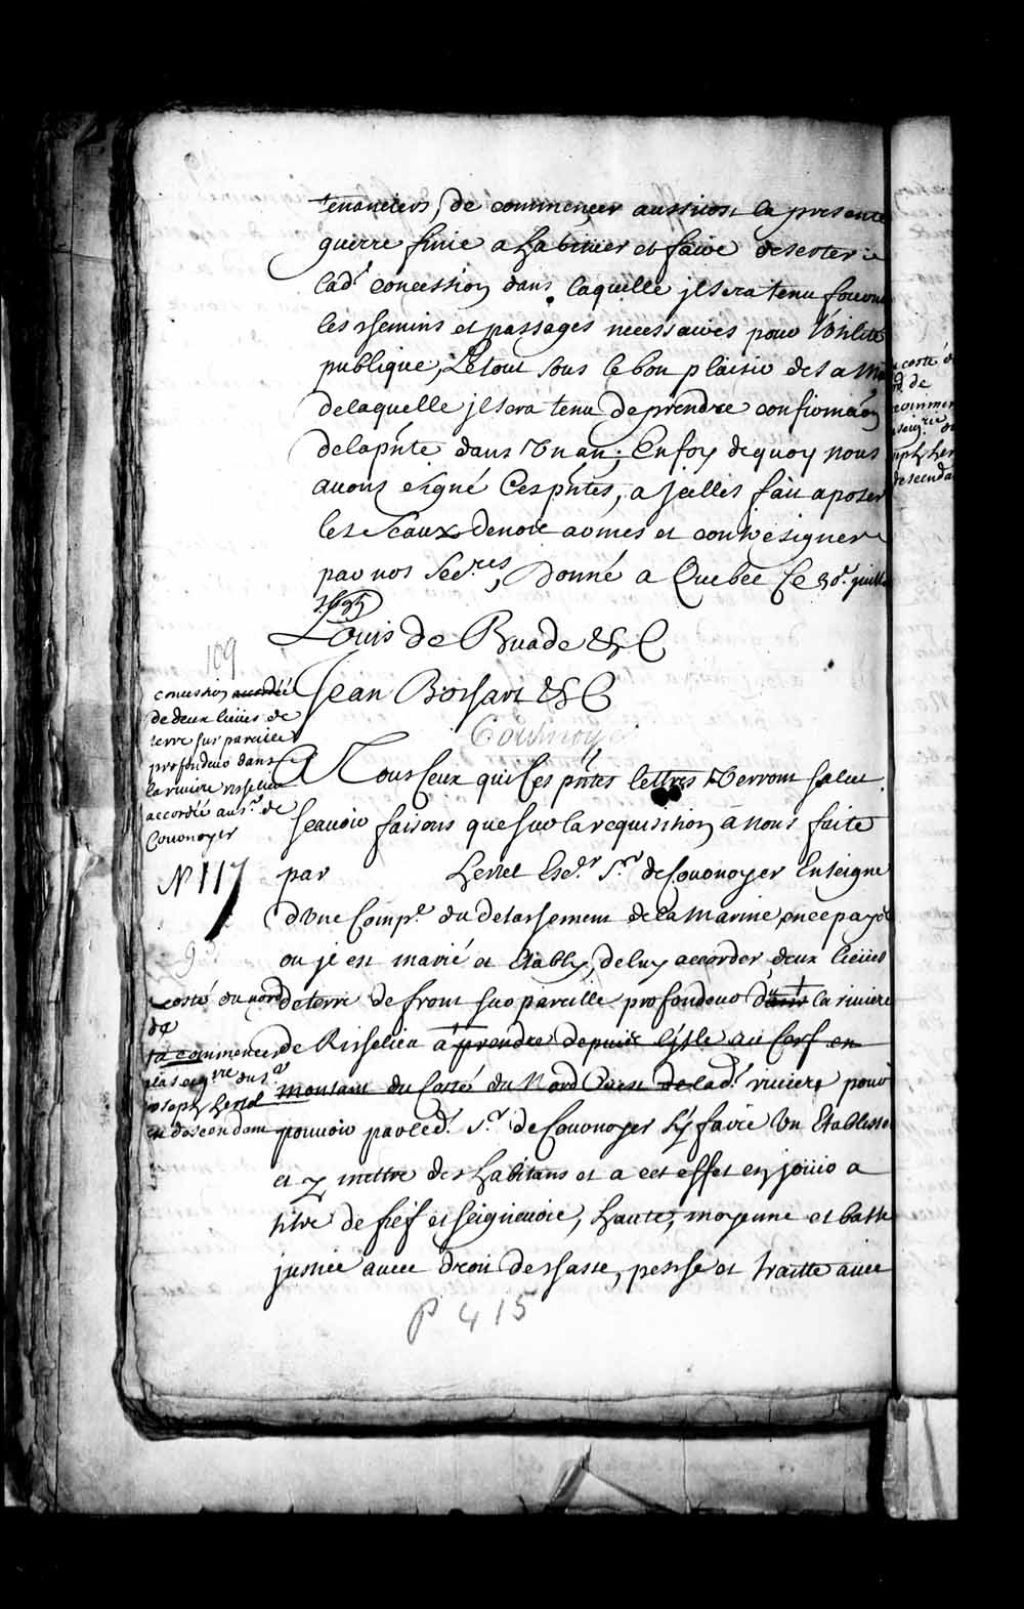 tenanciers, de commencer aussitost la presente
guerre finie a habituer et faire deserter
lad.e concession dans laquelle jl sera tenu
les chemins et passages necessaires pour l'utilité
publique, Le tout sous le bon plaisir de sa Ma
de laquelle jl sera tenu de prendre confirmaōn
de la pñte dans Un an; En foy de quoy nous
avons signé Ces pñtes, a jcelles fait aposer
les sceaux de nos armes et contresigner
par nos Secr.res, Donné a Quebec Ce
1695
Louis de Buade &C
109
Jean Bochart &C
concession accordée
de deux lieües de
terre sur pareille
profondeur dans
la riviere risselieu
accordée au s.r de
Couvnoyer
Cournoyer
A Tous Ceux qui Ces pñtes lettres Verront salut
scavoir faisons que sur la requisition a nous faite
N 117
par Hertel Esc.r S.r de Couvnoyer Enseigne
d'Une Comp.e du detachement de la marine, en ce payis
ou jl est marié et Etably, de luy accorder deux lieües
de terre de front sur pareille profondeur dans la riviere
de Risselieu a prendre depuis l'jsle au Cerf en
montant du Costé du Nord Ouest de lad.e riviere pour
costé du nord
de
la commencer
la seig.rie du s.r
joseph hertel
en descendant
pouvoir par led. S.r de Couvnoyer s'y faire Un Etablisse
et y mettre des habitans et a cet effet en jouir a
titre de fief et seigneurie, haute, moyenne et basse
justice avec droit de chasse, pesche et traitte avec
P 415
costé d
de
commen
seig.rie d
joseph her
descenda